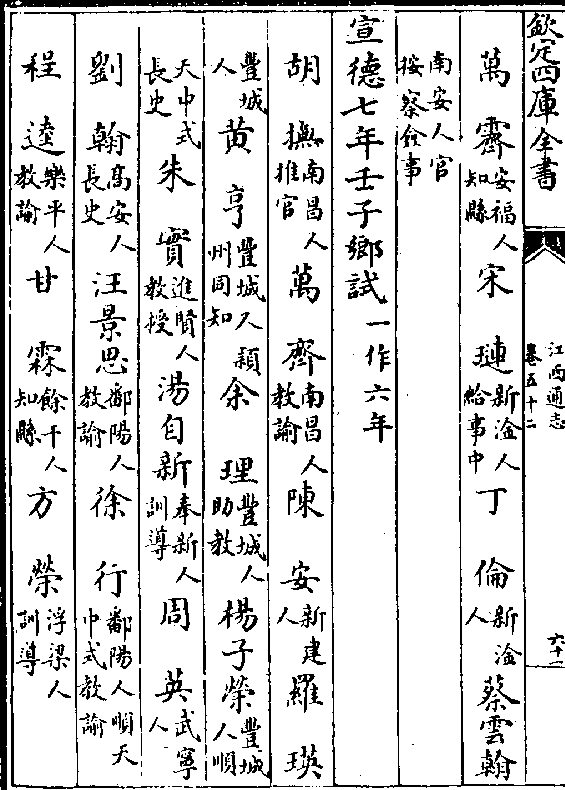 欽定四庫全書
江西通志
卷五十二
六十一
萬霽安福人知縣宋璉新淦人給事中丁倫新淦人蔡雲翰
南安人官按察僉事
宣德七年壬子鄉試一作六年
胡撫南昌人推官萬齊南昌人教諭陳安新建人羅瑛
豐城人黃亨豐城人潁州同知余理豐城人助教楊子榮豐城人順
天中式長史朱實進賢人教授湯自新奉新人訓導周英武寧人
劉翰高安人長史汪景思鄱陽人教諭徐行鄱陽人順天中式教諭
程逵樂平人教諭甘霖餘干人知縣方榮浮梁人訓導